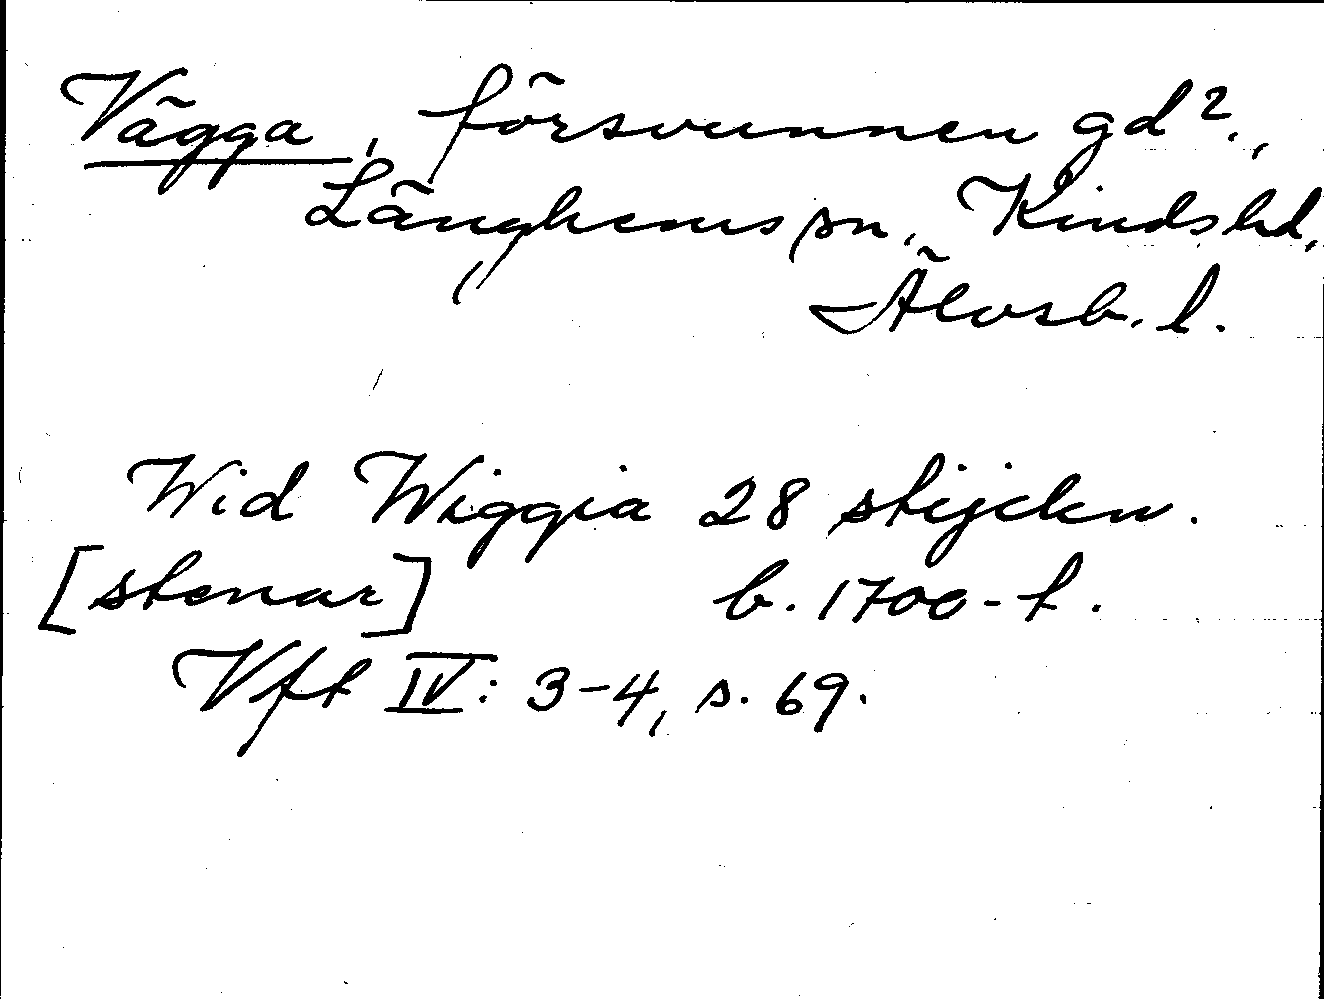 Vägga, försvunnen gd?.,
Länghems sn, Kinds hd,
Älvsb. l.
Wid Wiggia 28 stijcken.
[stenar] b. 1700-t.
Vft IV: 3-4, s. 69.